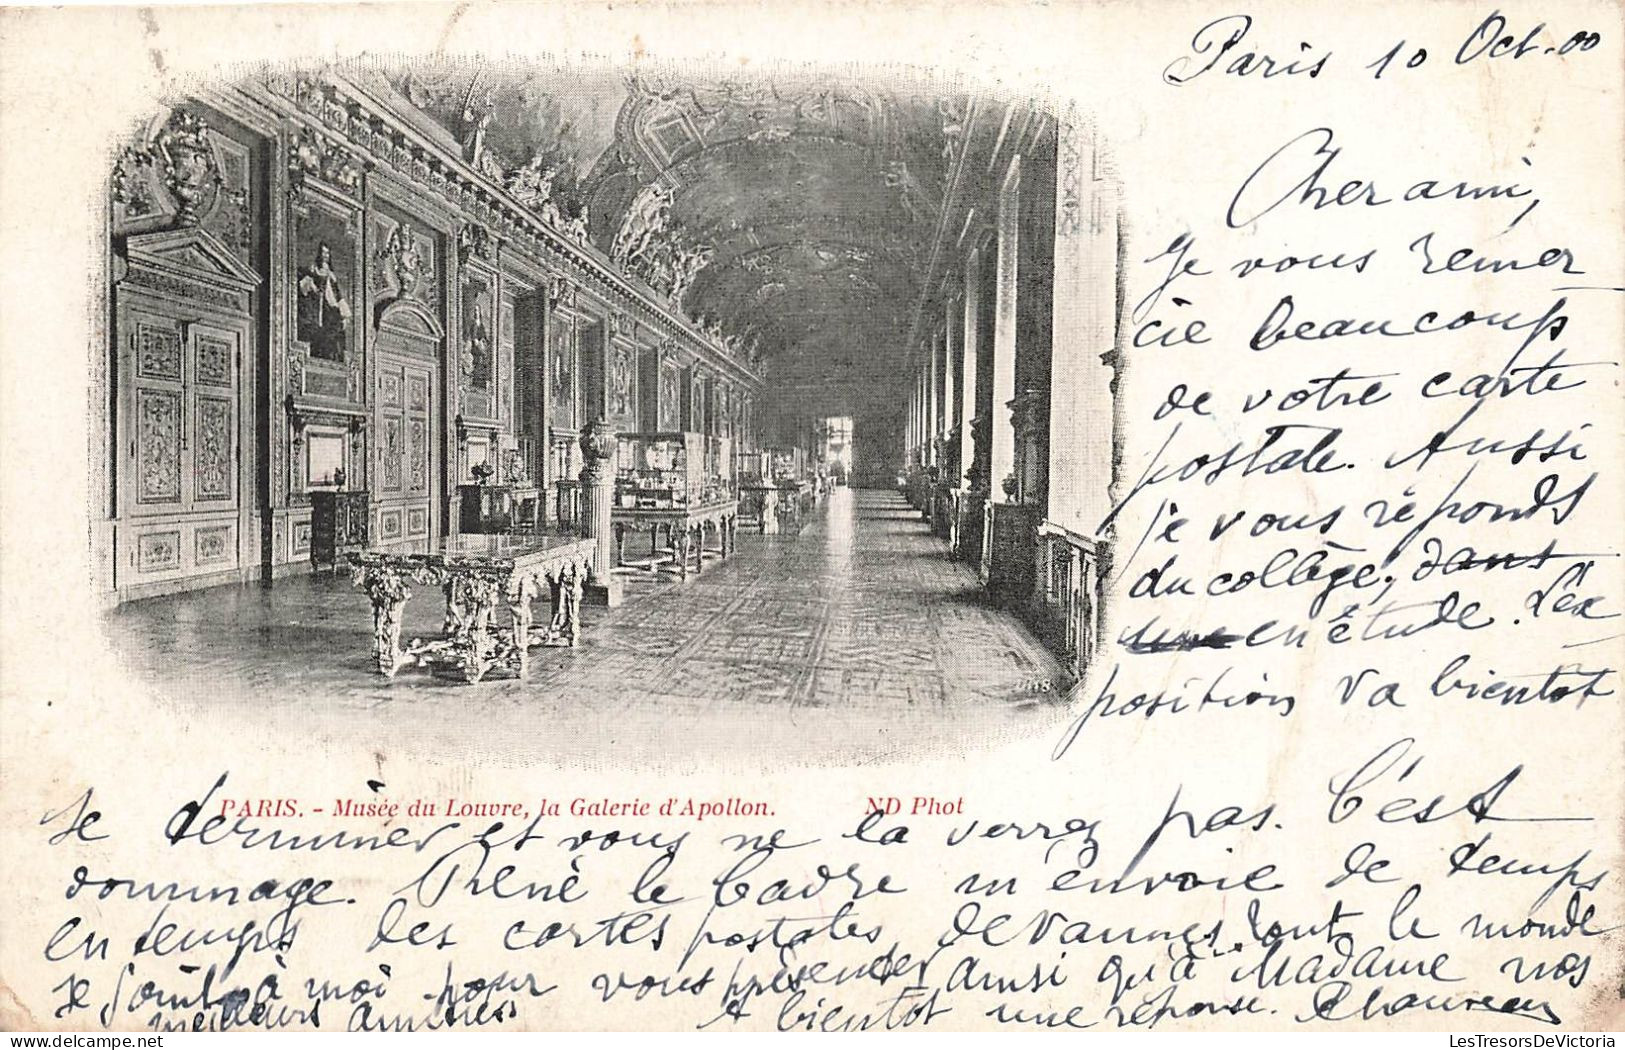 Paris 10 Oct. 00
Cher ami,
Je vous remer
cie beaucoup
de votre carte
postale. Aussi
je vous réponds
du collège, dans
en étude. L'ex
position va bientôt
PARIS. - Musée du Louvre, la Galerie d'Apollon. ND Phot
se terminer et vous ne la verrez pas. C'est
dommage. René le Cadre m'envoie de temps
en temps des cartes postales de Vannes, tout le monde
se joint à moi pour vous présenter ainsi qu'à Madame nos
meilleurs amitiés A bientôt une réponse.
LesTresorsDeVictoria